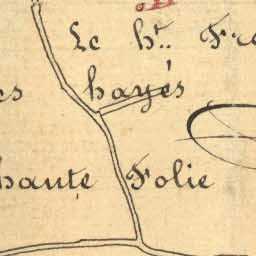 Le ht. Fre
es hayés
haute Folie